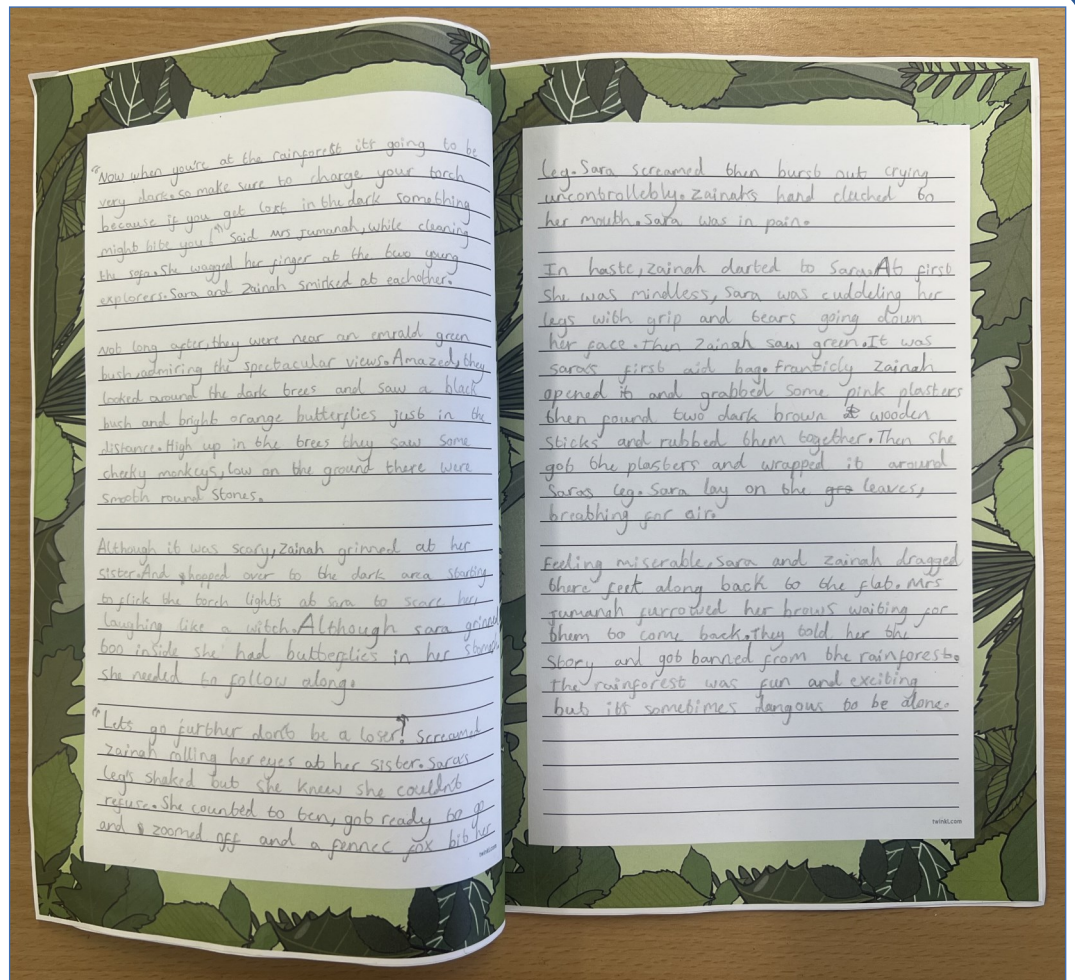 "Now when you're at the rainforest it's going to be
very dark. so make sure to charge your torch
because if you get lost in the dark something
might bite you!" Said Mrs Jumanah, while cleaning
the sofa. She wagged her finger at the two young
explorers. Sara and Zainah smirked at eachother.
Not long after, they were near an emrald green
bush, admiring the spectacular views. Amazed, they
looked around the dark trees and saw a black
bush and bright orange butterflies just in the
distance. High up in the trees they saw some
cheeky monkeys, low on the ground there were
smooth round stones.
Although it was scary, Zainah grinned at her
sister. And hopped over to the dark area starting
to flick the torch lights at sara to scare her,
laughing like a witch. Although sara grinned
too inside she had butterflies in her stomach
she needed to follow along.
"Lets go further don't be a loser!" Screamed
Zainah rolling her eyes at her sister. Sara's
leg's shaked but she knew she couldn't
refuse. She counted to ten, got ready to go
and zoomed off and a fennec fox bit her
twinkl.com
leg. Sara screamed then burst out crying
uncontrollebly. Zainah's hand cluched to
her mouth. Sara was in pain.
In haste, Zainah darted to Sara. At first
she was mindless, Sara was cuddeling her
legs with grip and tears going down
her face. Then Zainah saw green. It was
sara's first aid bag. franticly Zainah
opened it and grabbed some pink plasters
then found two dark brown wooden
sticks and rubbed them together. Then she
got the plasters and wrapped it around
Saras leg. Sara lay on the leaves,
breathing for air.
Feeling miserable, Sara and Zainah dragged
there feet along back to the flat. Mrs
Jumanah furrowed her brows waiting for
them to come back. They told her the
story and got banned from the rainforest.
The rainforest was fun and exciting
but its sometimes dangous to be alone.
twinkl.com